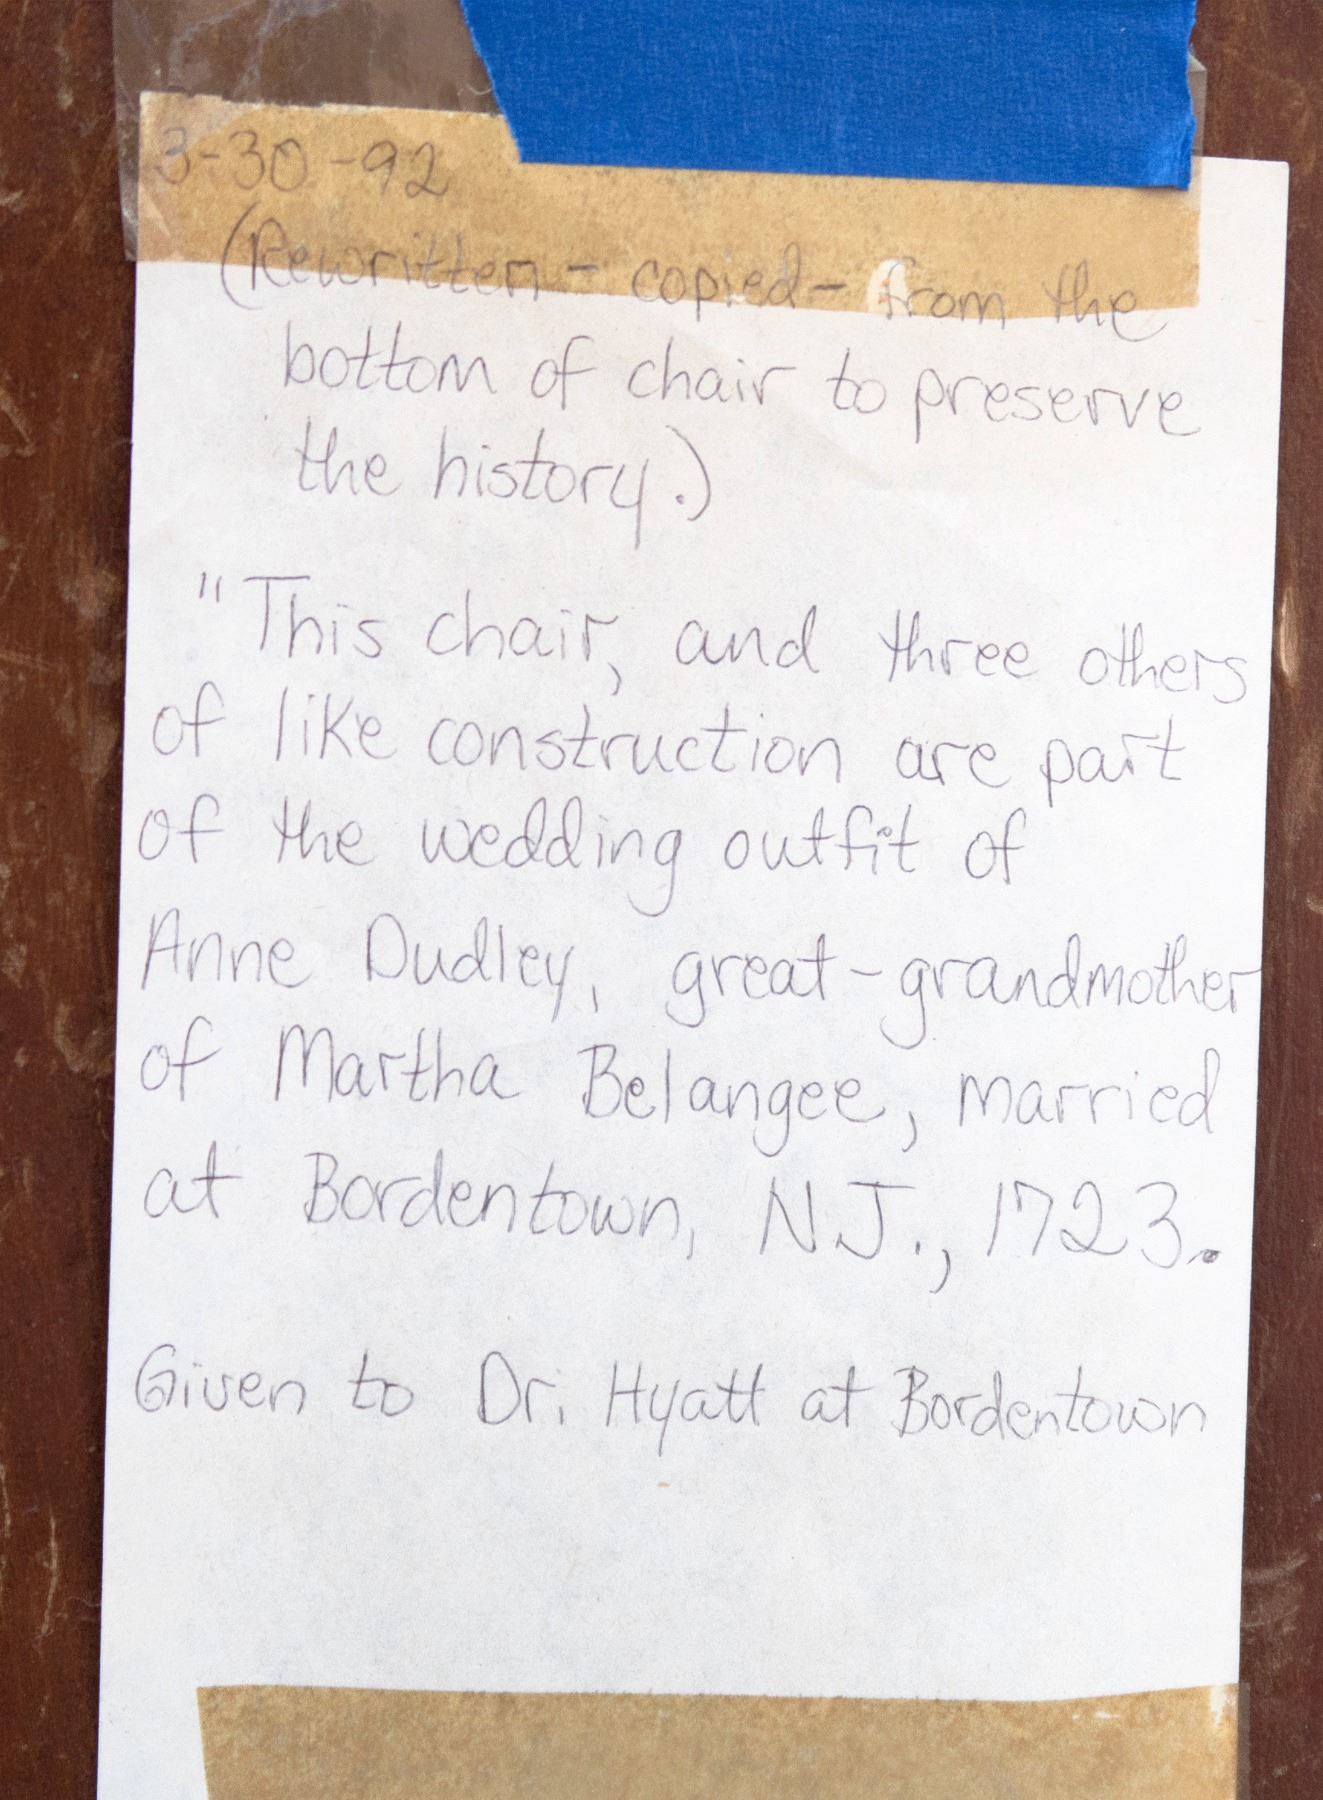 3-30-92
(Rewritten - copied - from the
bottom of chair to preserve
the history.)
"This chair, and three others
of like construction are part
of the wedding outfit of
Anne Dudley, great-grandmother
of Martha Belangee, married
at Bordentown, N.J., 1723.
Given to Dr. Hyatt at Bordentown